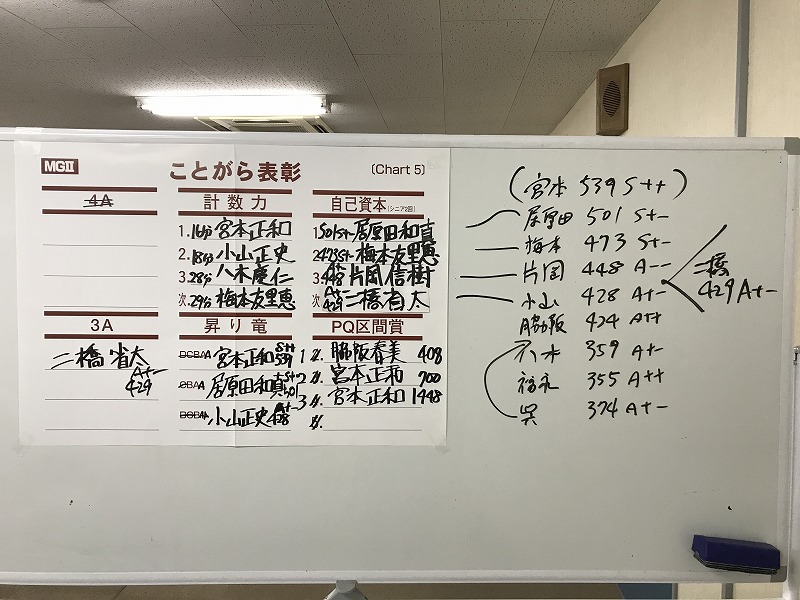 MGII
ことがら表彰
(Chart 5)
4A
計数力
1. 16分 宮本正和
2. 18分 小山正史
3. 28分 八木慶仁
次. 29分 梅本友里恵
自己資本(シニア2回)
1. 501 S+- 居原田和真
2. 473 S+- 梅本友里恵
3. 448 A-- 片岡信樹
次. 429 A+- 二橋省太
3A
二橋省太
A+-
429
昇り竜
DCBAA 宮本正和 S++ 539
CBAA 居原田和真 S+- 501
DCBAA 小山正史 A+- 428
PQ区間賞
1 脇阪春美 408
2 宮本正和 700
3 宮本正和 1448
(宮本 539 S++)
居原田 501 S+-
梅本 473 S+-
片岡 448 A--
小山 428 A+-
二橋
429 A+-
脇阪 424 A++
八木 359 A+-
福永 355 A++
呉 374 A+-